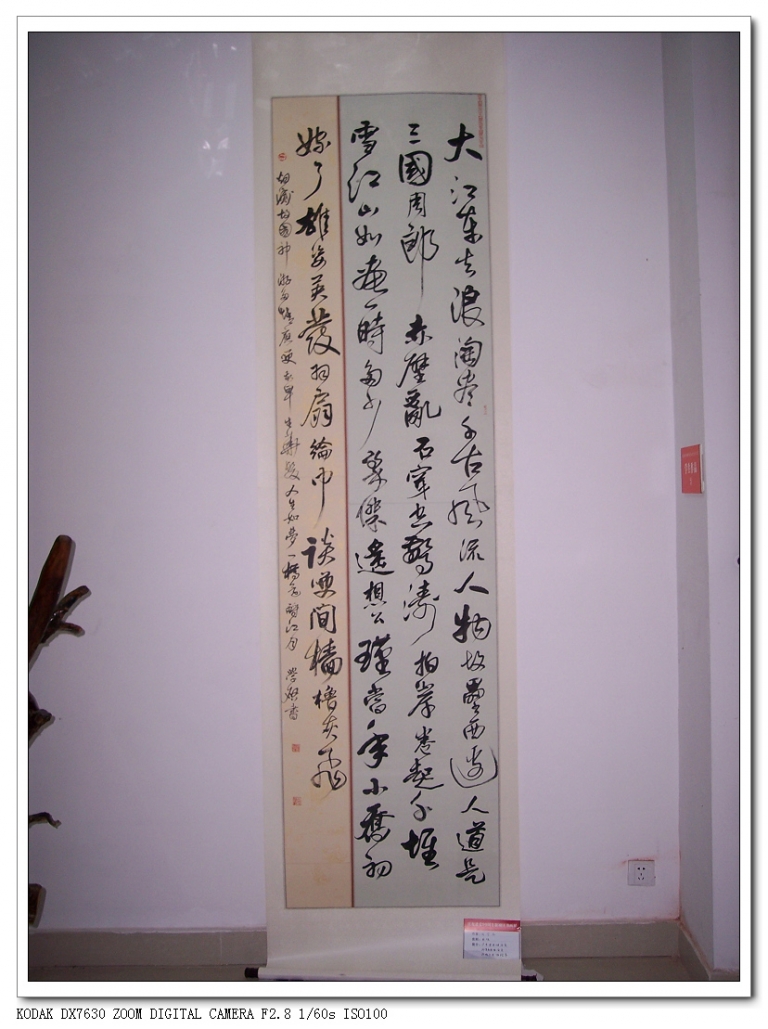 大江東去浪淘盡千古風流人物故壘西邊人道是
三國周郎赤壁亂石穿空驚濤拍岸卷起千堆
雪江山如畫一時多少豪傑遙想公瑾當年小喬初
嫁了雄姿英發羽扇綸巾談笑間檣櫓灰飛
烟滅故國神游多情應笑我早生華髮人生如夢一樽還酹江月
KODAK DX7630 ZOOM DIGITAL CAMERA F2.8 1/60s ISO100